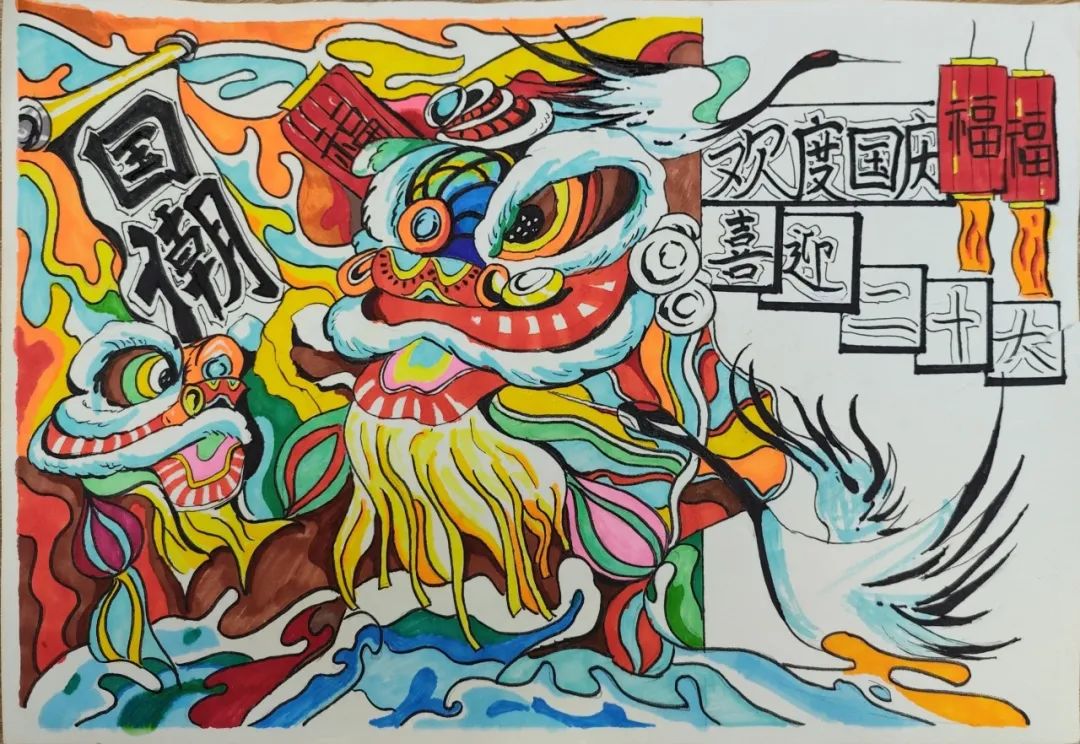 国潮
欢度国庆
福
福
喜迎二十大